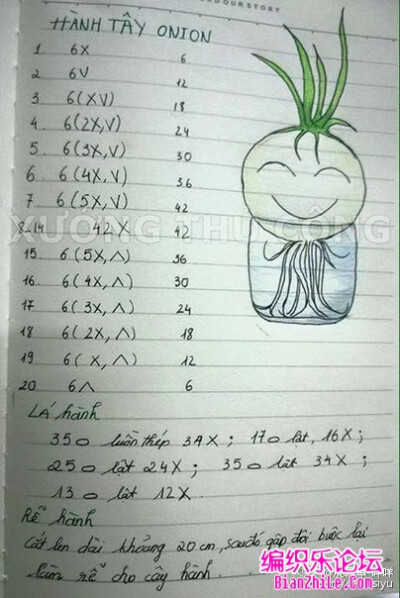 OUR STORY
HÀNH TÂY ONION
1 6X 6
2 6V 12
3 6(XV) 18
4 6(2X,V) 24
5 6(3X,V) 30
6 6(4X,V) 36
7 6(5X,V) 42
XƯỞNG THỦ CÔNG
8-14 42X 42
15 6(5X,Λ) 36
16 6(4X,Λ) 30
17 6(3X,Λ) 24
18 6(2X,Λ) 18
19 6(X,Λ) 12
20 6Λ 6
LÁ hành
35o luồn thép 34X; 17o lật, 16X;
25o lật 24X; 35o lật 34X;
13o lật 12X.
Rễ hành
Cắt len dài khoảng 20cm, sau đó gập đôi buộc lại
làm rễ cho cây hành.
编织乐论坛
BianZhiLe.Com